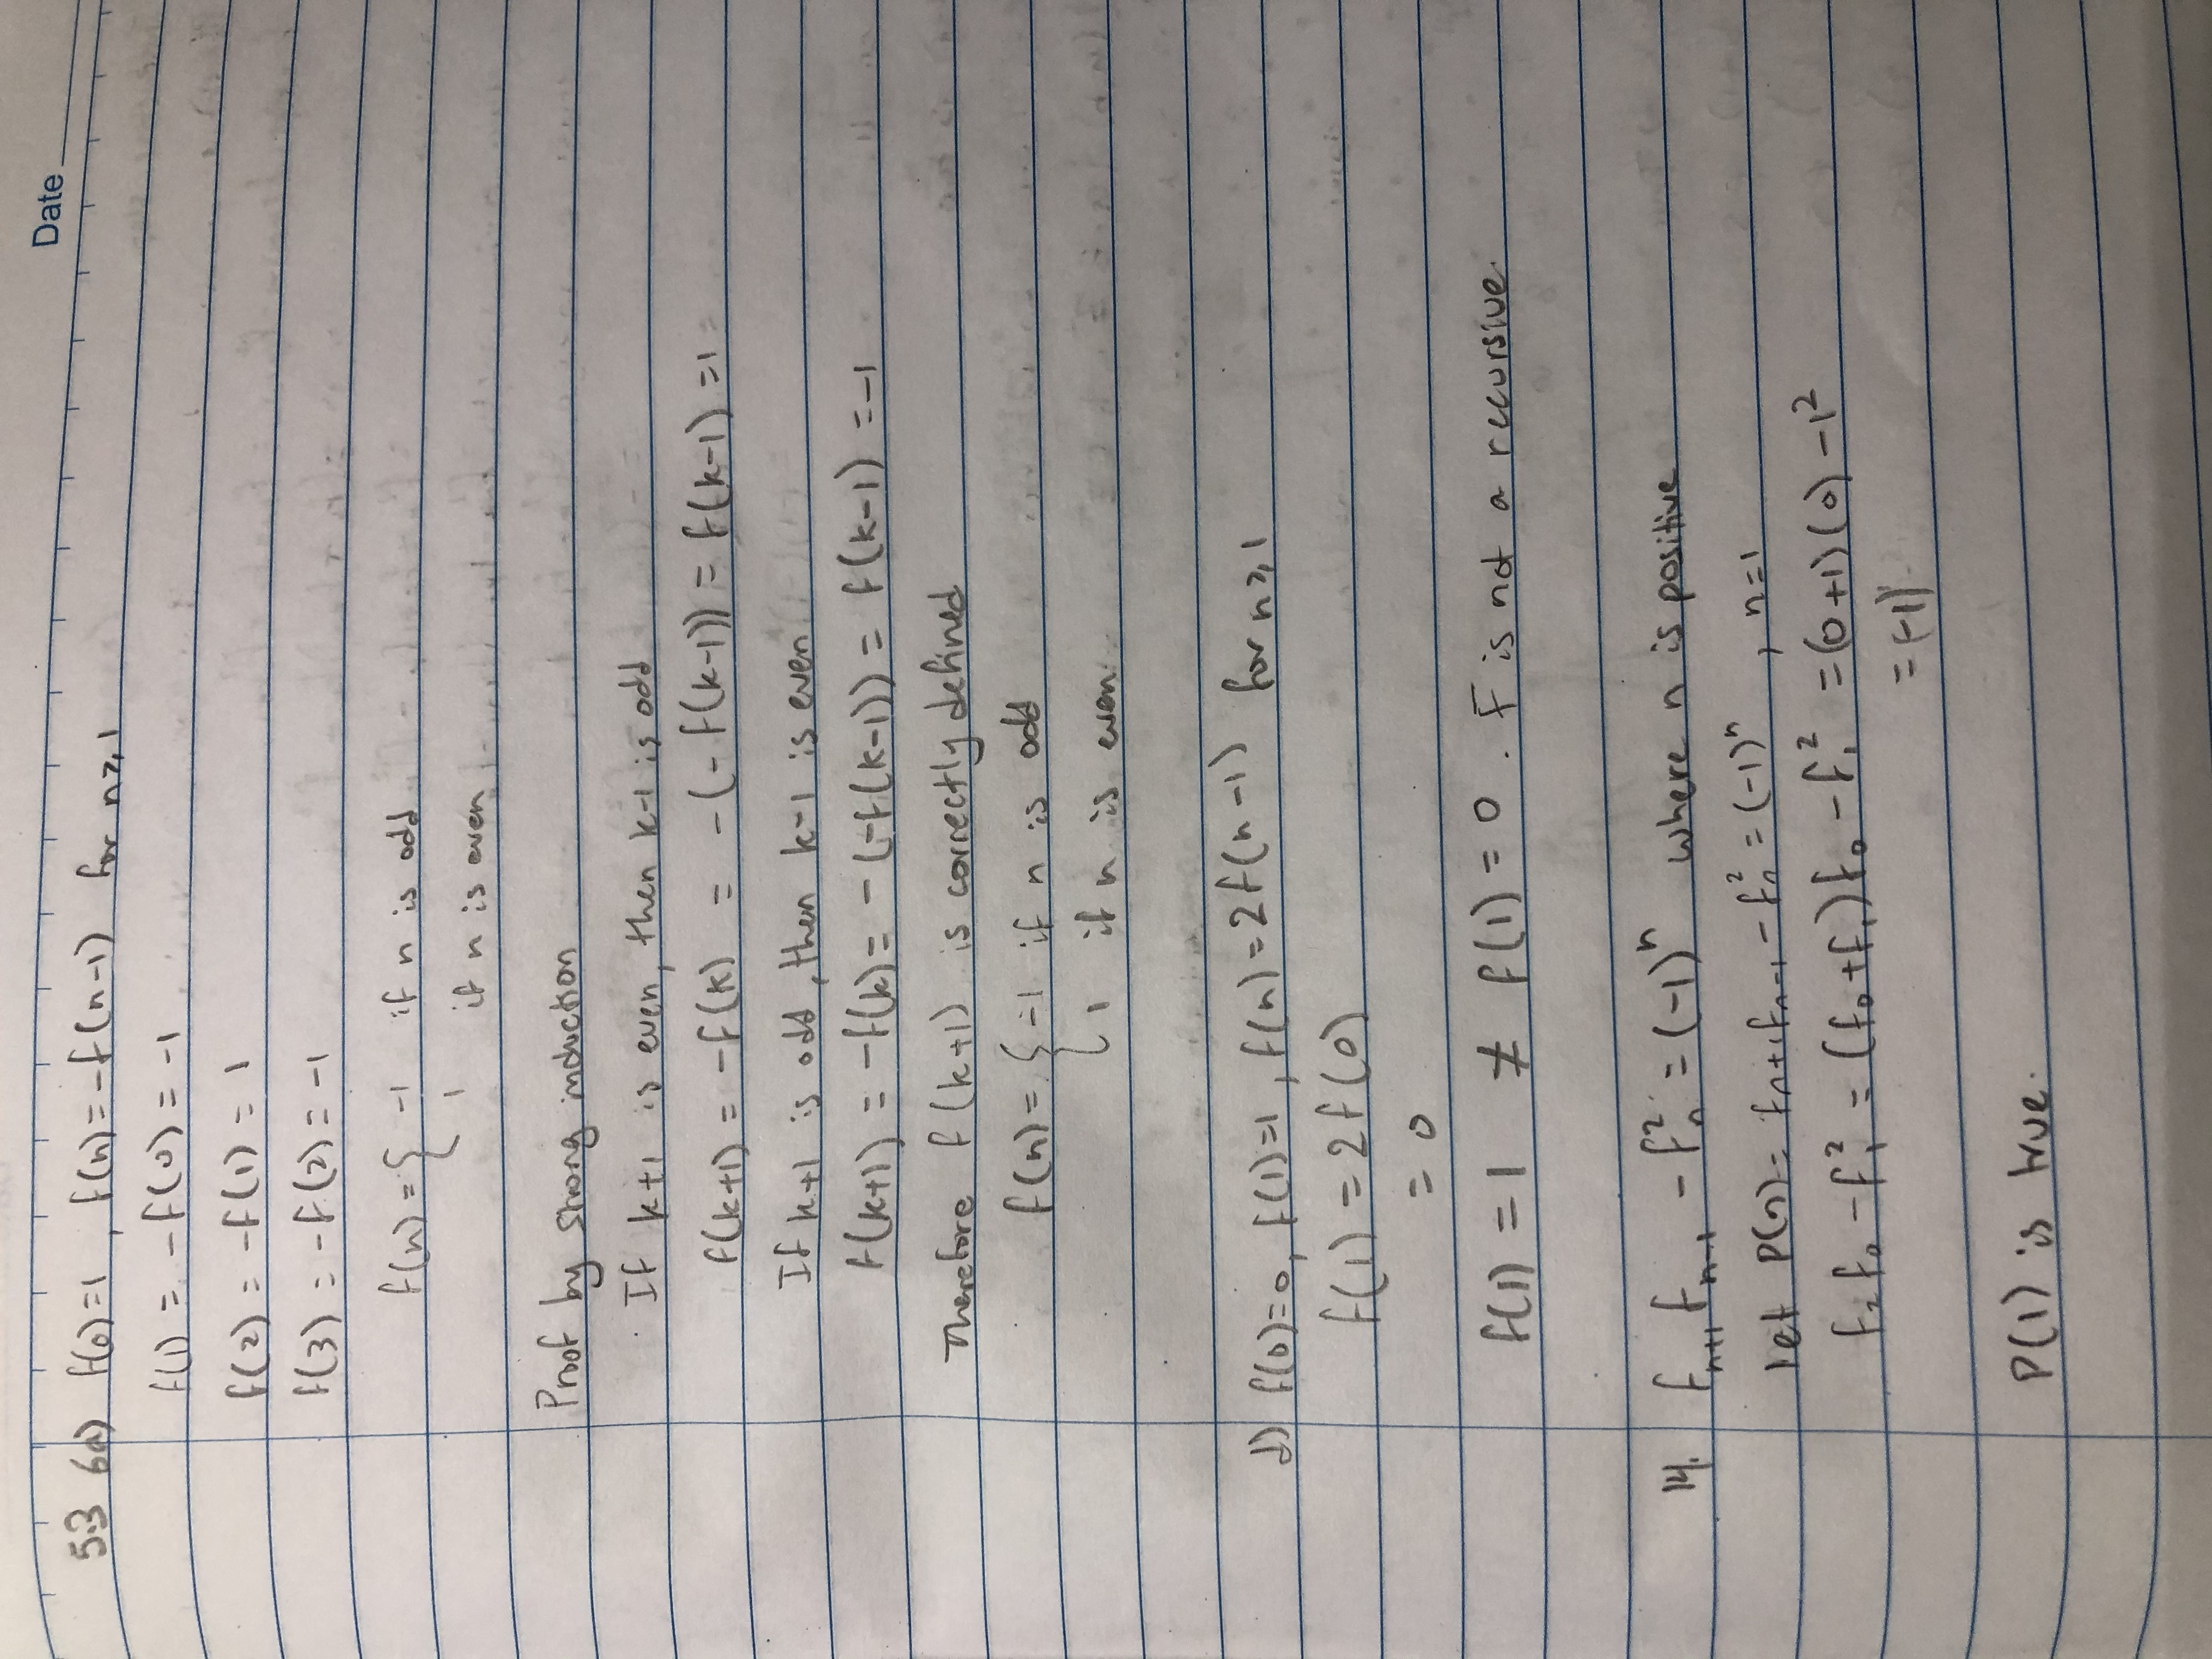 Date
5.3 6a) f(0)=1, f(n)=-f(n-1) for n≥1
f(1) = -f(0) = -1
f(2) = -f(1) = 1
f(3) = -f(2) = -1
f(n) = { -1 if n is odd
1 if n is even
Proof by strong induction
If k+1 is even, then k-1 is odd
f(k+1) = -f(k) = -(-f(k-1)) = f(k-1) = 1
If k+1 is odd, then k-1 is even
f(k+1) = -f(k) = -(-f(k-1)) = f(k-1) = -1
Therefore f(k+1) is correctly defined
f(n) = { -1 if n is odd
1 if n is even.
d) f(0)=0, f(1)=1, f(n)=2f(n-1) for n≥1
f(1) = 2f(0)
= 0
f(1) = 1 ≠ f(1) = 0. F is not a recursive.
14. fₙ₊₁ fₙ₋₁ - fₙ² = (-1)ⁿ where n is positive
let P(n) = fₙ₊₁fₙ₋₁ - fₙ² = (-1)ⁿ, n=1
f₂f₀ - f₁² = (f₀+f₁)f₀ - f₁² = (0+1)(0) - 1²
= (-1)¹
P(1) is true.